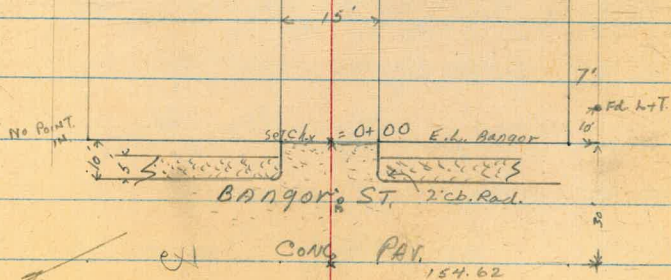 15'
7'
Fd. L+T.
10'
No POINT.
IN.
Set Ch.x = 0+00 E.L. Bangor
10'
5'
BANGOR ST.
2' cb. Rad.
30'
30'
CONC PAV.
154.62